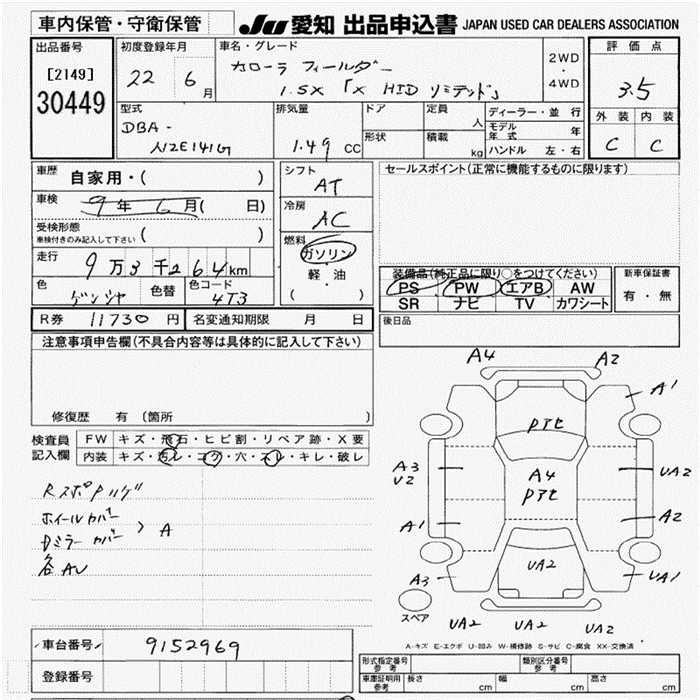 車内保管・守衛保管
JU 愛知 出品申込書 JAPAN USED CAR DEALERS ASSOCIATION
出品番号
[2149]
30449
初度登録年月
22 6月
車名・グレード
カローラ フィールダー
1.5X 「X HID リミテッド」
2WD
・
4WD
評価点
3.5
外装 内装
C C
型式
DBA-
NZE141G
排気量
1.49 CC
ドア
形状
定員 人
積載 kg
ディーラー・並行
モデル年式 年
ハンドル 左・右
車歴
自家用・( )
車検
9年 6月( 日)
受検形態
車検付きのみ記入して下さい ( )
走行
9万3千264km
色
ゲンシャ
色替
色コード
4T3
シフト
AT
冷房
AC
燃料
ガソリン
軽・油
( )
セールスポイント(正常に機能するものに限ります)
装備品(純正品に限り○をつけてください)
PS PW エアB AW
SR ナビ TV カワシート
新車保証書
有・無
R券 11730 円 名変通知期限 月 日
後日品
注意事項申告欄(不具合内容等は具体的に記入して下さい)
修復歴 有 (箇所
検査員
記入欄
FW キズ・飛石・ヒビ割・リペア跡・X要
内装 キズ・汚レ・コゲ・穴・スレ・キレ・破レ
ホイールカバー
Dミラーカバー > A
各AU
A4 A2
A1
Pアセ
A3
U2
A4
Pアセ
UA2
A1
A2
UA2
A3
UA1
スペア
UA2 UA2 UA2
A-キズ E-エクボ U-凹み W-補修跡 S-サビ C-腐食 XX-交換済
車台番号 9152969
登録番号
形式指定番号
参考
類別区分番号
参考
車庫証明用
参考
長さ cm 幅 cm 高さ cm